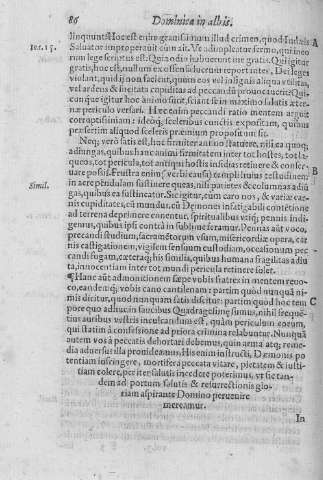 86 Dominica in albis.
linquunt. Hoc est enim grauissimum illud crimen, quod Iudæis A
Ioa. 15. Saluator improperauit cùm ait. Vt adimpleatur sermo, qui in eo
rum lege scriptus est: Quia odio habuerunt me gratis. Qui igitur
gratis, hoc est, nullum ex offensa lucrum reportantes, Dei leges
violant, quid ij non facient, quum eos vel insignis aliqua vtilitas,
vel ardens & incitata cupiditas ad peccandũ prouocauerit? Qui-
cunque igitur hoc animo sunt, sciant se in maximo salutis æter-
næ periculo versari. Hæc enim peccandi ratio mentem arguit
corruptissimam: ideoq; sceleribus cunctis expositam, quibus
præsertim aliquod sceleris præmium propositum sit.
Neq; verò satis est, hæc firmiter animo statuere, nisi ea quoq;
adiungas, quibus hanc animi firmitatem inter tot hostes, tot la-
queos, tot pericula, tot antiqui hostis insidias retinere & conser-
uare possis. Frustra enim (verbi causa) templi huius testudinem B
Simil. in aere pendulam sustinere queas, nisi parietes & columnas adiũ
gas, quibus ea sustineatur. Sic igitur, cùm caro nos, & variæ car-
nis cupiditates, cũ mundus, cũ Dæmonis infatigabili contẽtione
ad terrena deprimere connentur, spiritualibus vtiq; pennis indi-
gemus, quibus ipsi contrà in sublime feramur. Pennas aũt voco,
precandi studium, sacramẽtorum vsum, misericordiæ opera, car
nis castigationem, vigilem sensuum custodiam, occasionum pec-
candi fugam, cæteraq; his similia, quibus humana fragilitas adiu
ta, innocentiam inter tot mundi pericula retinere solet.
¶ Hanc aũt admonitionem sæpe vobis fratres in mentem reuo-
co, eandemq; vobis cano cantilenam: partim quòd nunquã ni-
mis dicitur, quod nunquam satis discitur: partim quòd hoc tem C
pore quo adhuc in faucibus Quadragesimę sumus, nihil sequẽ-
tius auribus vestris inculcandum est, quàm periculum eorum,
qui statim à confessione ad priora crimina relabuntur. Nunquã
autem vos à peccatis dehortari debemus, quin arma atq; reme-
dia aduersus illa prouideamus. His enim instructi, Dæmonis po
tentiam infringere, mortifera peccata vitare, pietatem & iusti-
tiam colere, per iter salutis incedere poterimus, vt sic tan-
dem ad portum salutis & resurrectionis glo-
riam aspirante Domino peruenire
mereamur.
In